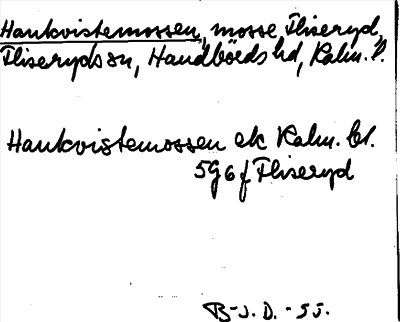 Hankvistemossen, mosse Fliseryd,
Fliseryds sn, Handbörds hd, Kalm. l.
Hankvistemossen ek Kalm. bl.
5g6f Fliseryd
B-J. D. - 55.